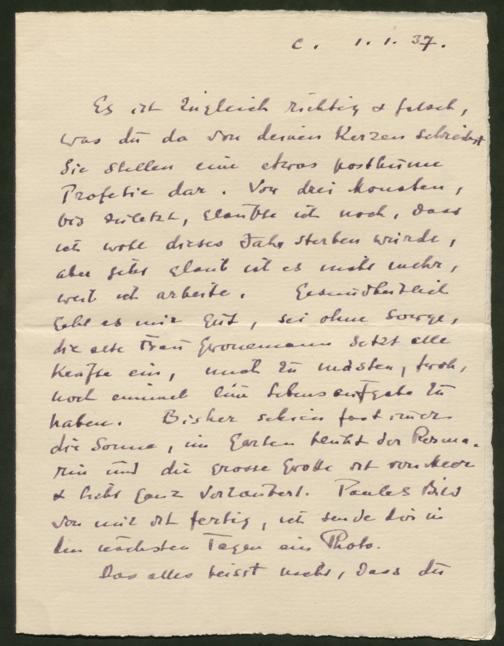 C. 1.1.37.
Es ist zugleich richtig & falsch,
was du da von deinen Kerzen schreibst
Sie stellen eine etwas posthume
Profetie dar. Vor drei Monaten,
bis zuletzt, glaubte ich noch, dass
ich wohl dieses Jahr sterben würde,
aber jetzt glaub ich es nicht mehr,
weil ich arbeite. Gesundheitlich
geht es mir gut, sei ohne Sorge,
die alte Frau Gronemann setzt alle
Kräfte ein, mich zu mästen, froh,
noch einmal eine Lebensaufgabe zu
haben. Bisher schien fast immer
die Sonne, im Garten blüht der Rosma-
rin und die grosse Grotte ist vom Meer
& Licht ganz verzaubert. Paules Bild
von mir ist fertig, ich sende dir in
den nächsten Tagen ein Photo.
Das alles heisst nicht, dass du